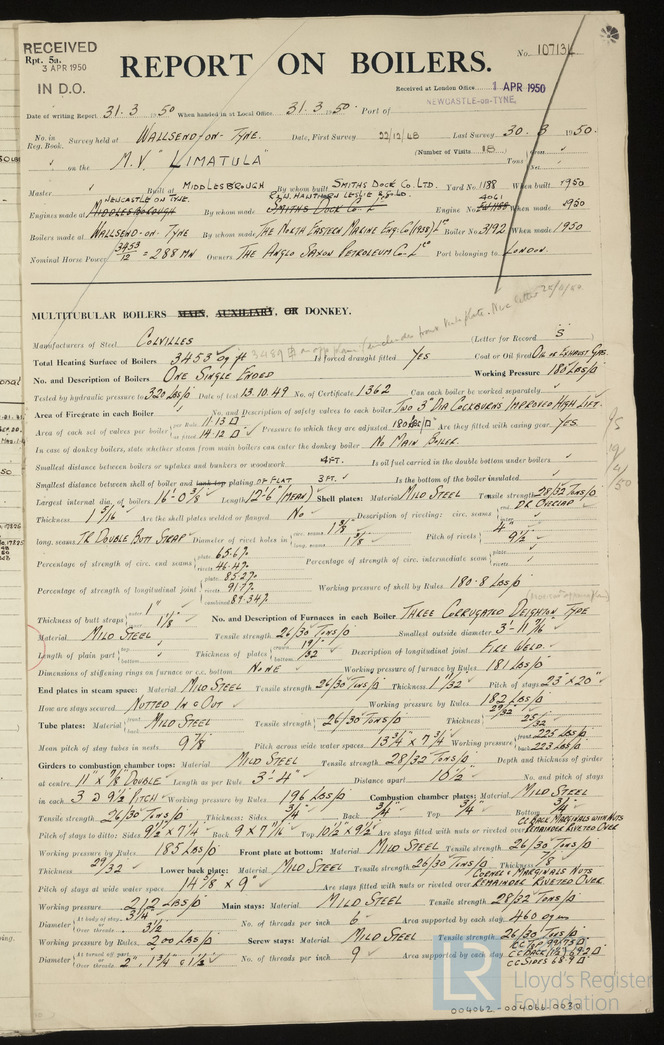 RECEIVED
Rpt. 5a.
3 APR 1950
IN D.O.
No. 10713
REPORT ON BOILERS.
Received at London Office 1 APR 1950
NEWCASTLE-ON-TYNE.
Date of writing Report 31.3.1950 When handed in at Local Office 31.3.1950. Port of
No. in Reg. Book. Survey held at WALLSEND-ON-TYNE. Date, First Survey 22/12/48 Last Survey 30.3.1950.
(Number of Visits 18) Gross Tons Net
on the M.V "LIMATULA"
Master Built at MIDDLESBROUGH By whom built SMITHS DOCK CO. LTD. Yard No. 1188 When built 1950
NEWCASTLE ON TYNE. R.&W. HAWTHORN LESLIE & CO LD. 4061
Engines made at MIDDLESBOROUGH By whom made SMITHS DOCK CO. Lᵈ Engine No. When made 1950
Boilers made at WALLSEND-ON-TYNE By whom made THE NORTH EASTERN MARINE ENG. CO (1938) Lᵈ Boiler No. 3192 When made 1950
Nominal Horse Power 3453/12 = 288 MN Owners THE ANGLO SAXON PETROLEUM CO. Lᵗᵈ Port belonging to LONDON.
MULTITUBULAR BOILERS MAIN, AUXILIARY, OR DONKEY.
Manufacturers of Steel COLVILLES (Letter for Record S)
Total Heating Surface of Boilers 3453 sq ft Is forced draught fitted YES Coal or Oil fired OIL OR EXHAUST GAS.
No. and Description of Boilers ONE SINGLE ENDED Working Pressure 180 LBS/□
Tested by hydraulic pressure to 320 LBS/□ Date of test 13.10.49 No. of Certificate 1362 Can each boiler be worked separately
Area of Firegrate in each Boiler No. and Description of safety valves to each boiler TWO 3" DIA COCKBURNS IMPROVED HIGH LIFT.
Area of each set of valves per boiler per Rule 11.13 □" as fitted 14.12 □" Pressure to which they are adjusted 180 LBS/□ Are they fitted with easing gear YES.
In case of donkey boilers, state whether steam from main boilers can enter the donkey boiler NO MAIN BOILER.
Smallest distance between boilers or uptakes and bunkers or woodwork 4FT. Is oil fuel carried in the double bottom under boilers
Smallest distance between shell of boiler and tank top plating OF FLAT 3 FT. Is the bottom of the boiler insulated
Largest internal dia. of boilers 16'-0 3/8" Length 12'-6" (MEAN) Shell plates: Material MILD STEEL Tensile strength 28/32 TONS/□
Thickness 1 5/16" Are the shell plates welded or flanged NO Description of riveting: circ. seams DR. OVERLAP
long. seams TR DOUBLE BUTT STRAP Diameter of rivet holes in circ. seams 1 3/8" long. seams 1 3/8" Pitch of rivets 4" 9 1/2"
Percentage of strength of circ. end seams plate 65.6% rivets 46.4% Percentage of strength of circ. intermediate seam plate rivets
Percentage of strength of longitudinal joint plate 85.27% rivets 91.7% combined 89.34% Working pressure of shell by Rules 180.8 LBS/□
Thickness of butt straps outer 1" inner 1 1/8" No. and Description of Furnaces in each Boiler THREE CORRUGATED DEIGHTON TYPE
Material MILD STEEL Tensile strength 26/30 TONS/□ Smallest outside diameter 3'-11 7/16"
Length of plain part top bottom Thickness of plates crown bottom 19/32 Description of longitudinal joint FIRE WELD.
Dimensions of stiffening rings on furnace or c.c. bottom NONE Working pressure of furnace by Rules 181 LBS/□
End plates in steam space: Material MILD STEEL Tensile strength 26/30 TONS/□ Thickness 1 1/32" Pitch of stays 23" × 20"
How are stays secured NUTTED IN & OUT Working pressure by Rules 182 LBS/□
Tube plates: Material front back MILD STEEL Tensile strength 26/30 TONS/□ Thickness 29/32 25/32
Mean pitch of stay tubes in nests 9 7/8 Pitch across wide water spaces 13 3/4" × 7 3/4" Working pressure front 225 LBS/□ back 223 LBS/□
Girders to combustion chamber tops: Material MILD STEEL Tensile strength 28/32 TONS/□ Depth and thickness of girder
at centre 11" × 7/8" DOUBLE Length as per Rule 3'-4" Distance apart 10 1/2" No. and pitch of stays
in each 3 @ 9 1/2 PITCH Working pressure by Rules 196 LBS/□ Combustion chamber plates: Material MILD STEEL
Tensile strength 26/30 TONS/□ Thickness: Sides 3/4" Back 3/4" Top 3/4" Bottom 3/4"
Pitch of stays to ditto: Sides 9 1/2 × 7 1/4 Back 9 × 7 7/16" Top 10 1/2 × 9 1/2" Are stays fitted with nuts or riveted over CC BACK MARGINALS WITH NUTS REMAINDER RIVETED OVER
Working pressure by Rules 185 LBS/□ Front plate at bottom: Material MILD STEEL Tensile strength 26/30 TONS/□
Thickness 29/32 Lower back plate: Material MILD STEEL Tensile strength 26/30 TONS/□ Thickness 7/8
Pitch of stays at wide water space 14 5/8 × 9" Are stays fitted with nuts or riveted over CORNER & MARGINALS NUTS REMAINDER RIVETED OVER
Working pressure 212 LBS/□ Main stays: Material MILD STEEL Tensile strength 28/32 TONS/□
Diameter At body of stay, or Over threads 3 1/4" 3 1/2 No. of threads per inch 6 Area supported by each stay 460 sq ins
Working pressure by Rules 200 LBS/□ Screw stays: Material MILD STEEL Tensile strength 26/30 TONS/□
Diameter At turned off part, or Over threads 2", 1 3/4" & 1 1/2" No. of threads per inch 9 Area supported by each stay CC TOP 99.75 □" CC BACK (1 1/2) 69.2 □" CC SIDES 68.9 □"
LR Lloyd's Register Foundation
004062-004066-0030